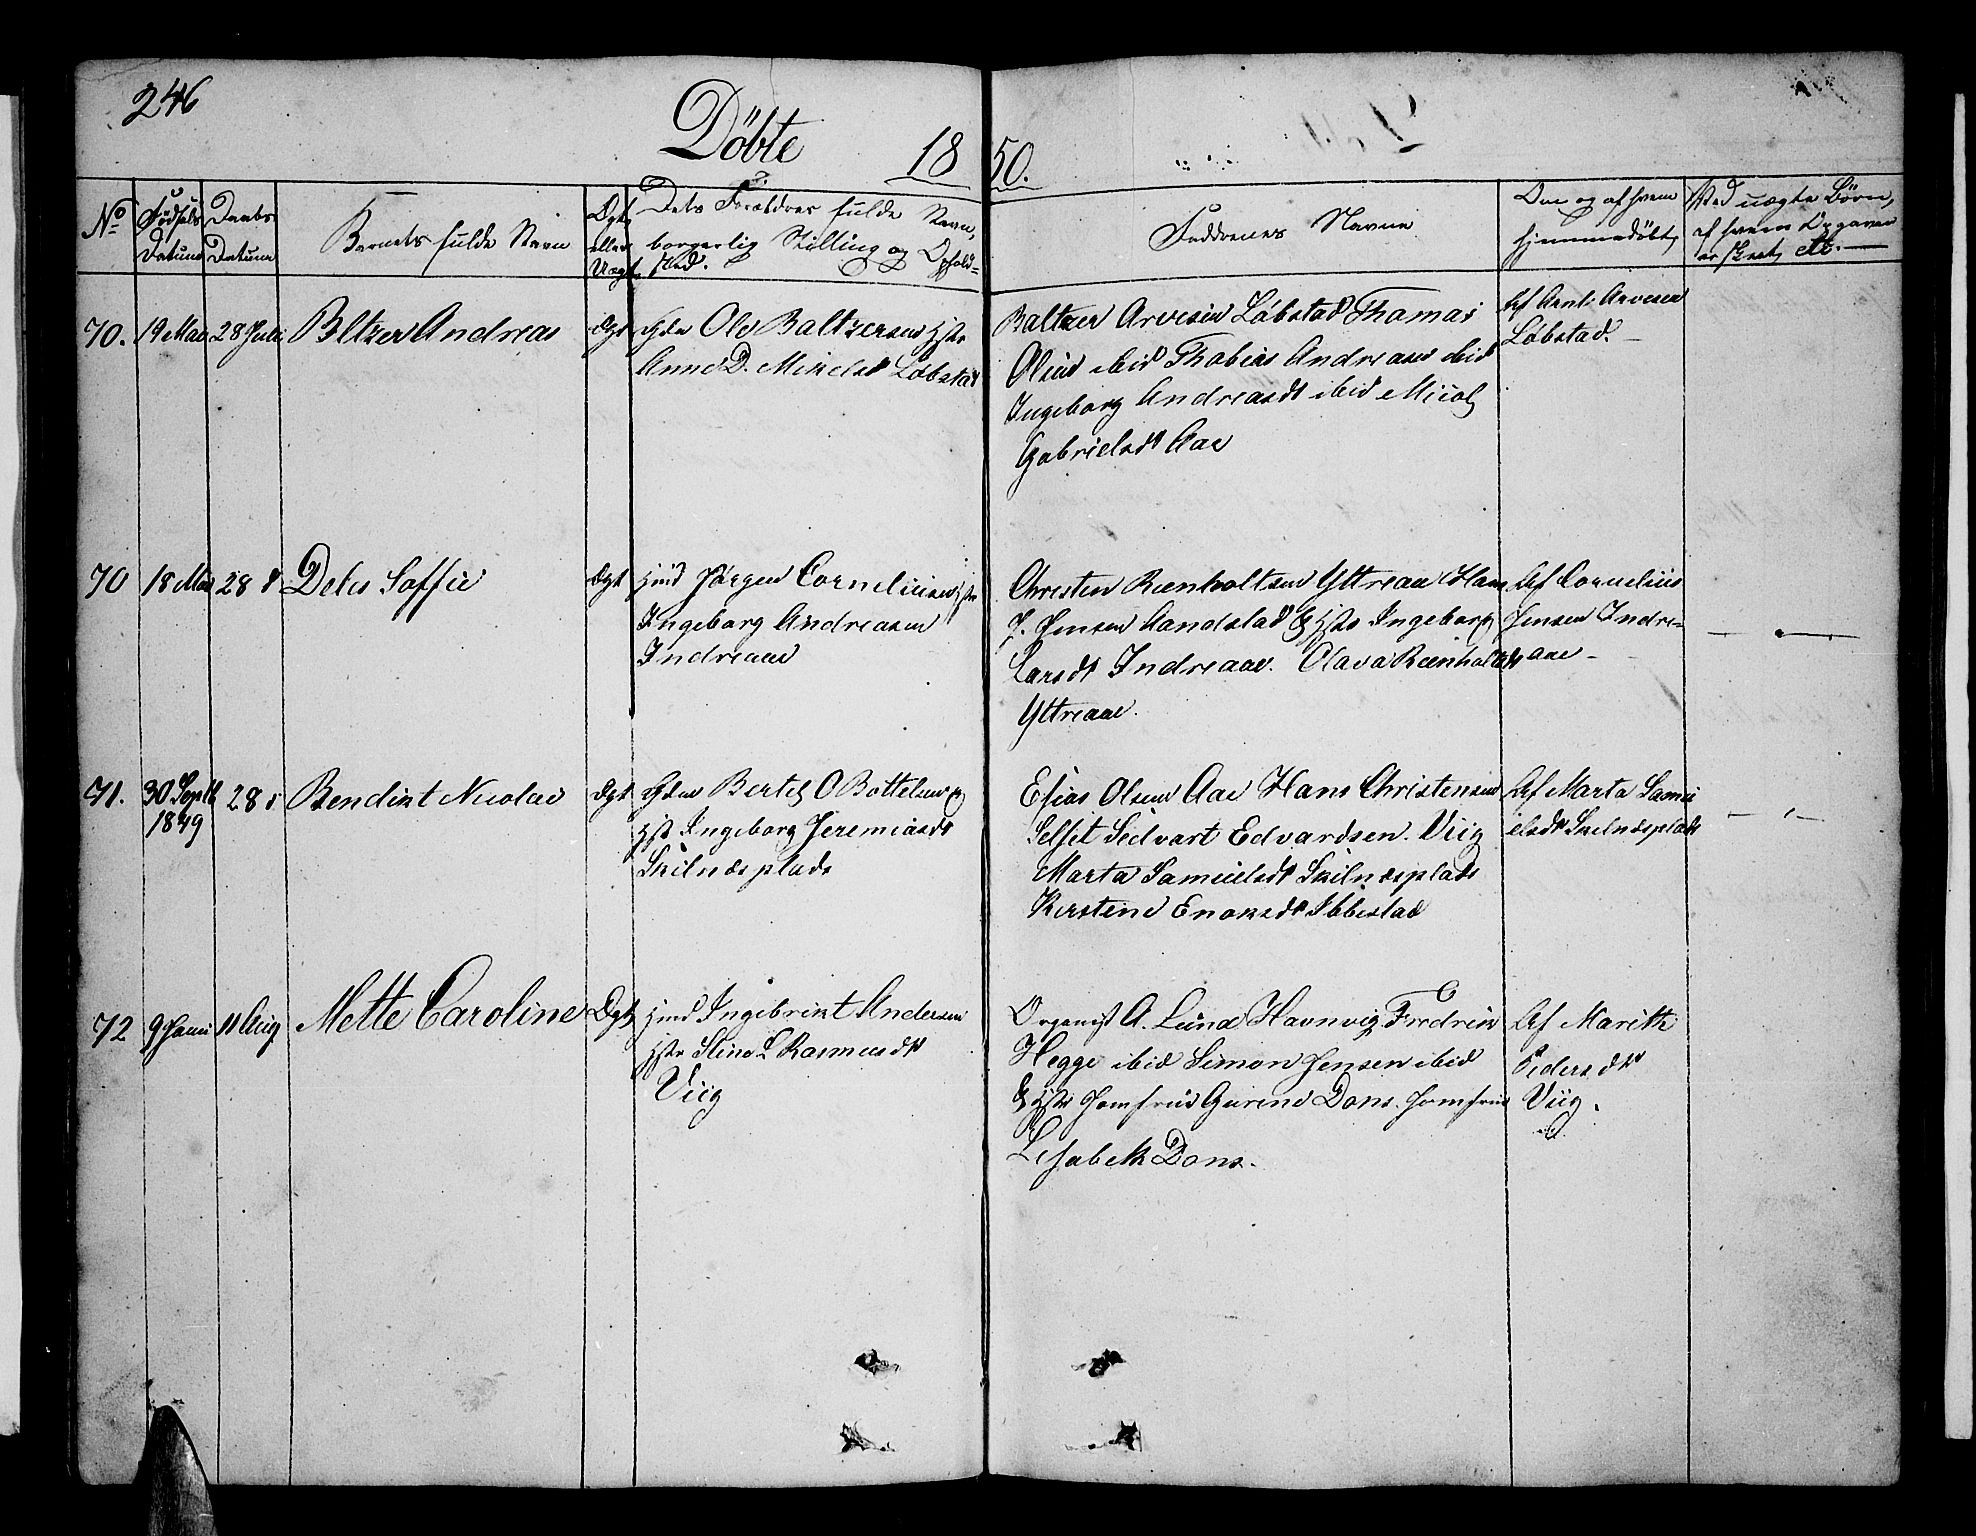 246
Döbte
1850.
No
Fødsels Datum
Daabs Datum
Barnets fulde Navn
Ægt eller Uægt
Dets Forældres fulde Navn,
borgerlig Stilling og Opholds=
sted.
Faddernes Navne
Om og af hvem
hjemmedöbt,
Ved uægte Börn,
af hvem Opgaven
er skeet, etc.
70. 19 Mai 28 Juli Baltzer Andreas Ægt Gdm Ole Baltzersen Hst
Anne D. Mikelsdt Löbstad
Baltzer Arvesen Löbstad Thomas
Olsen ibid Thobias Andreasen ibid
Ingeborg Andreasdt ibid
Gabrielsdt Aae
Af Arnt Arvesen
Löbstad.
70 18 Mai 28 Soffie Ægt Hmd Jörgen Corneliusen Hst
Ingeborg Andreasen
Indreaae
Christen Reenholtsen Yttreaae Hans
J. Jensen Aandstad & Hst Ingeborg
Larsdt Indreaae. Olava Reenholdtsdt
Yttreaae.
Af Cornelius
Jensen Indre=
aae
71. 30 Septb 1849 28 Bendikt Nicolai Ægt Gdm Bertel O Bottelsen &
Hst Ingeborg Jeremiasdt
Skilnæsplads
Esias Olsen Aae Hans Christensen
Selset Sedvart Edvardsen. Viig
Marta Samuelsdt Skilnæsplads
Kirstine Enoksdt Ibbestad
Af Marta Samu
elsdt Skilnæsplads
72 9 Juni 11 Aug Mette Caroline Ægt Hmd Ingebrikt Andersen
Hst Stine L Rasmusdt
Viig
Organist A. Lund Havnvig Fredrik
Hegge ibid Simon Jensen ibid
& Hst Jomfrue Gurine Dons. Jomfrue
Lisabeth Dons.
Af Marith
Pedersdt
Viig.